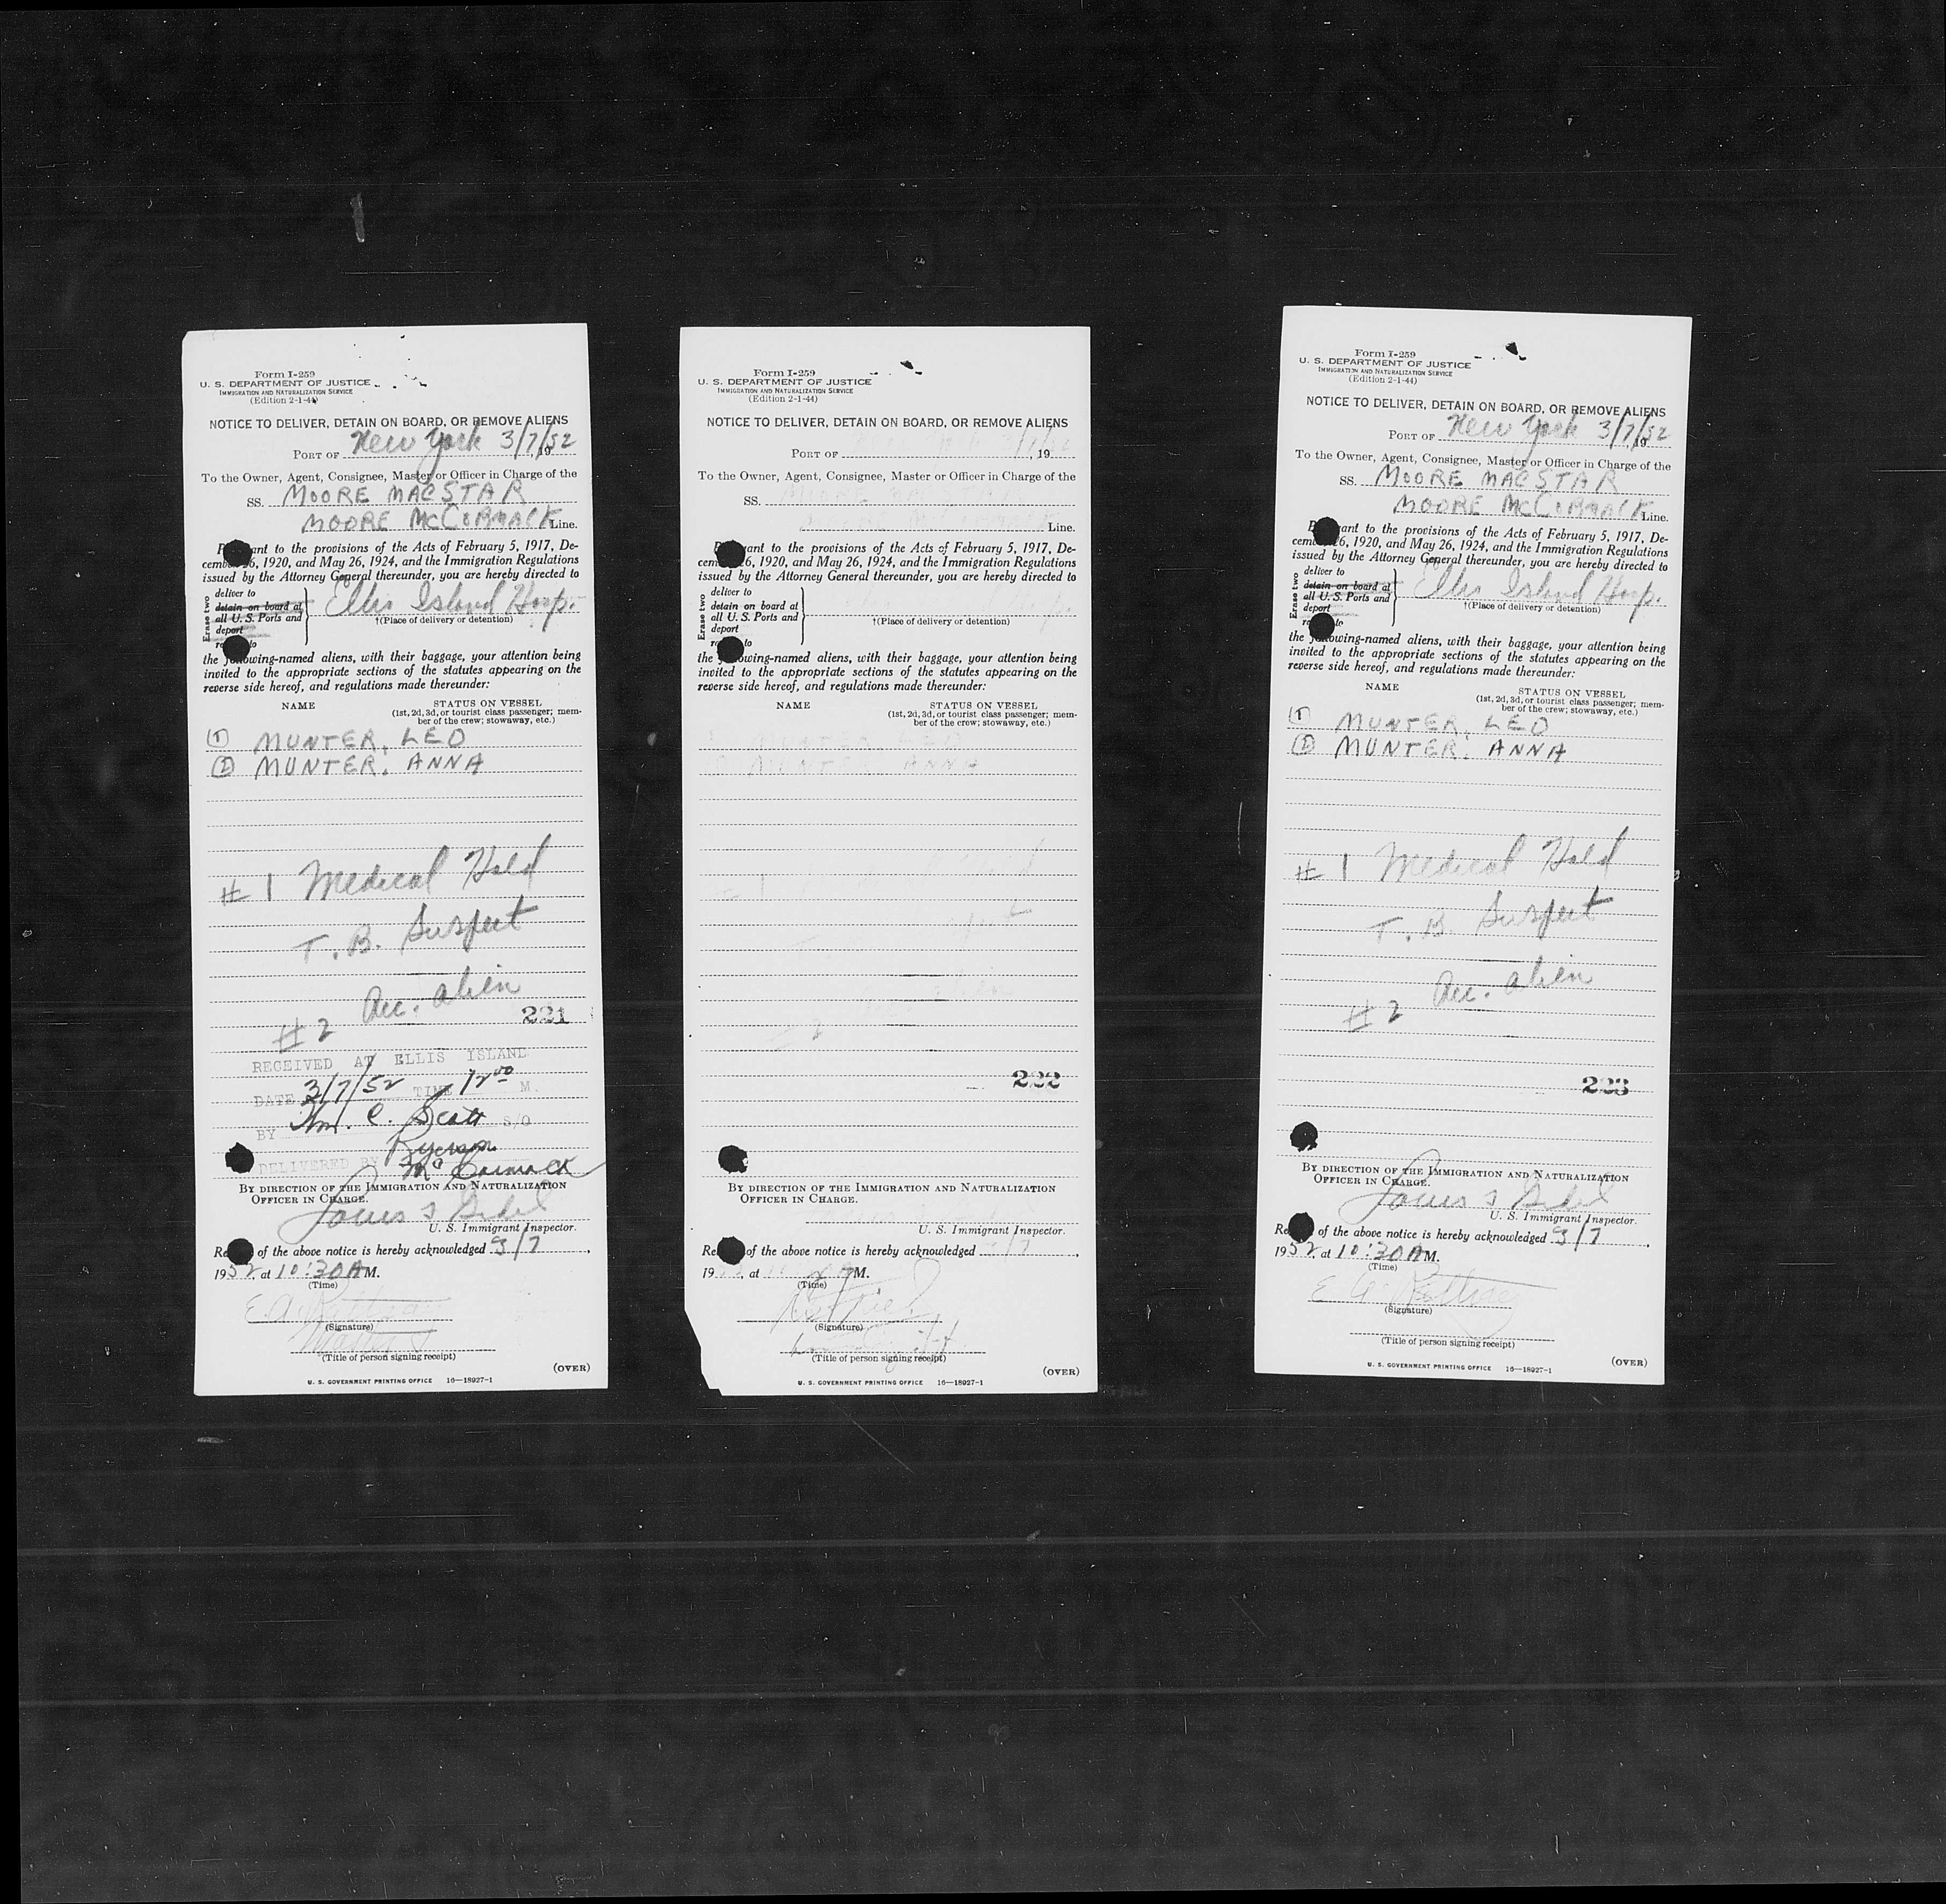 Form I-259
U. S. DEPARTMENT OF JUSTICE
IMMIGRATION AND NATURALIZATION SERVICE
(Edition 2-1-44)
NOTICE TO DELIVER, DETAIN ON BOARD, OR REMOVE ALIENS
PORT OF New York 3/7/52, 19
To the Owner, Agent, Consignee, Master or Officer in Charge of the
SS. MOORE MACSTAR
MOORE McCORMACK Line.
ant to the provisions of the Acts of February 5, 1917, De-
cemb 6, 1920, and May 26, 1924, and the Immigration Regulations
issued by the Attorney General thereunder, you are hereby directed to
Erase two
deliver to
detain on board at
all U. S. Ports and
deport
to
Ellis Island Hosp.
†(Place of delivery or detention)
the following-named aliens, with their baggage, your attention being
invited to the appropriate sections of the statutes appearing on the
reverse side hereof, and regulations made thereunder:
NAME STATUS ON VESSEL
(1st, 2d, 3d, or tourist class passenger; mem-
ber of the crew; stowaway, etc.)
① MUNTER, LEO
② MUNTER, ANNA
# 1 Medical Hold
T. B. Suspect
Acc. alien
221
# 2
RECEIVED AT ELLIS ISLAND
DATE 3/7/52 TIME 1200 M.
BY Wm. C. Scott S/O
Ryerson
DELIVERED BY Mc Cormack
BY DIRECTION OF THE IMMIGRATION AND NATURALIZATION
OFFICER IN CHARGE.
U. S. Immigrant Inspector.
Re of the above notice is hereby acknowledged 3/7,
1952, at 10:30 A M.
(Time)
(Signature)
(Title of person signing receipt)
(OVER)
U. S. GOVERNMENT PRINTING OFFICE 16—18927-1
Form I-259
U. S. DEPARTMENT OF JUSTICE
IMMIGRATION AND NATURALIZATION SERVICE
(Edition 2-1-44)
NOTICE TO DELIVER, DETAIN ON BOARD, OR REMOVE ALIENS
PORT OF , 19
To the Owner, Agent, Consignee, Master or Officer in Charge of the
SS. MOORE MACSTAR
Line.
ant to the provisions of the Acts of February 5, 1917, De-
cem 6, 1920, and May 26, 1924, and the Immigration Regulations
issued by the Attorney General thereunder, you are hereby directed to
Erase two
deliver to
detain on board at
all U. S. Ports and
deport
to
†(Place of delivery or detention)
the following-named aliens, with their baggage, your attention being
invited to the appropriate sections of the statutes appearing on the
reverse side hereof, and regulations made thereunder:
NAME STATUS ON VESSEL
(1st, 2d, 3d, or tourist class passenger; mem-
ber of the crew; stowaway, etc.)
MUNTER, LEO
MUNTER, ANNA
# 1
222
BY DIRECTION OF THE IMMIGRATION AND NATURALIZATION
OFFICER IN CHARGE.
U. S. Immigrant Inspector.
Re of the above notice is hereby acknowledged ,
19 , at M.
(Time)
(Signature)
(Title of person signing receipt)
(OVER)
U. S. GOVERNMENT PRINTING OFFICE 16—18927-1
Form I-259
U. S. DEPARTMENT OF JUSTICE
IMMIGRATION AND NATURALIZATION SERVICE
(Edition 2-1-44)
NOTICE TO DELIVER, DETAIN ON BOARD, OR REMOVE ALIENS
PORT OF New York 3/7/52, 19
To the Owner, Agent, Consignee, Master or Officer in Charge of the
SS. MOORE MACSTAR
MOORE McCORMACK Line.
ant to the provisions of the Acts of February 5, 1917, De-
cem 6, 1920, and May 26, 1924, and the Immigration Regulations
issued by the Attorney General thereunder, you are hereby directed to
Erase two
deliver to
detain on board at
all U. S. Ports and
deport
to
Ellis Island Hosp.
†(Place of delivery or detention)
the following-named aliens, with their baggage, your attention being
invited to the appropriate sections of the statutes appearing on the
reverse side hereof, and regulations made thereunder:
NAME STATUS ON VESSEL
(1st, 2d, 3d, or tourist class passenger; mem-
ber of the crew; stowaway, etc.)
① MUNTER, LEO
② MUNTER, ANNA
# 1 Medical Hold
T. B. Suspect
Acc. alien
# 2
223
BY DIRECTION OF THE IMMIGRATION AND NATURALIZATION
OFFICER IN CHARGE.
U. S. Immigrant Inspector.
Re of the above notice is hereby acknowledged 3/7,
1952, at 10:30 A M.
(Time)
(Signature)
(Title of person signing receipt)
(OVER)
U. S. GOVERNMENT PRINTING OFFICE 16—18927-1